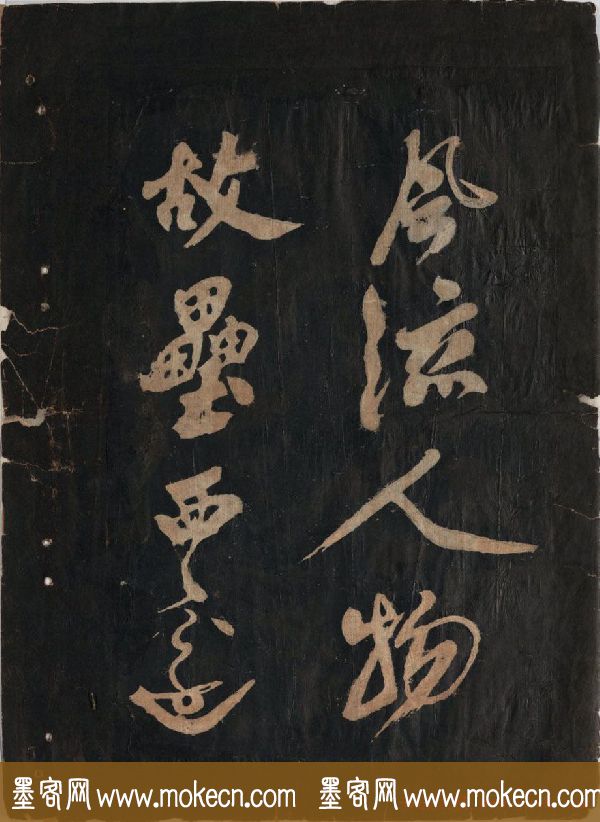 风流人物
故壘西邊
墨客网 www.mokecn.com 墨客网 www.mokecn.com